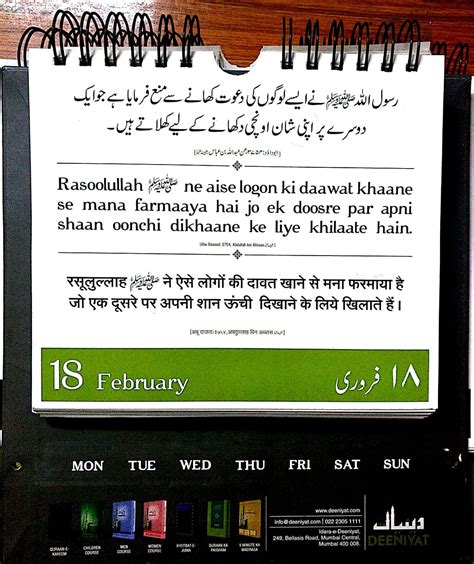 رسول اللہ ﷺ نے ایسے لوگوں کی دعوت کھانے سے منع فرمایا ہے جو ایک
دوسرے پر اپنی شان اونچی دکھانے کے لیے کھلاتے ہیں۔
Rasoolullah ﷺ ne aise logon ki daawat khaane
se mana farmaaya hai jo ek doosre par apni
shaan oonchi dikhaane ke liye khilaate hain.
[Abu Dawood: 3754, Abdullah bin Abbas]
रसूलुल्लाह ﷺ ने ऐसे लोगों की दावत खाने से मना फरमाया है
जो एक दूसरे पर अपनी शान ऊंची दिखाने के लिये खिलाते हैं।
18 February
۱۸ فروری
MON TUE WED THU FRI SAT SUN
www.deeniyat.com
info@deeniyat.com | 022 2305 1111
Idara-e-Deeniyat,
249, Bellasis Road, Mumbai Central,
Mumbai 400 008.
DEENIYAT
QURAAN-E-KAREEM
CHILDREN COURSE
MEN COURSE
WOMEN COURSE
KHUTBAT-E-JUMA
QURAAN KA PAIGHAM
5 MINUTE KA MADRASA